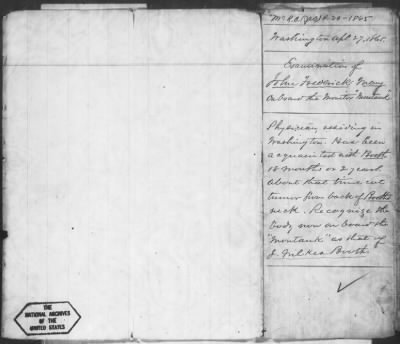 Washington Apl 27, 1865.
Examination of
John Frederick May
on board the Monitor "Montauk"
Physician residing in
Washington. Have been
acquainted with Booth
18 months or 2 years.
About that time cut
tumor from back of Booth's
neck. Recognize the
body now on board the
"Montauk" as that of
J. Wilkes Booth
THE
NATIONAL ARCHIVES
OF THE
UNITED STATES